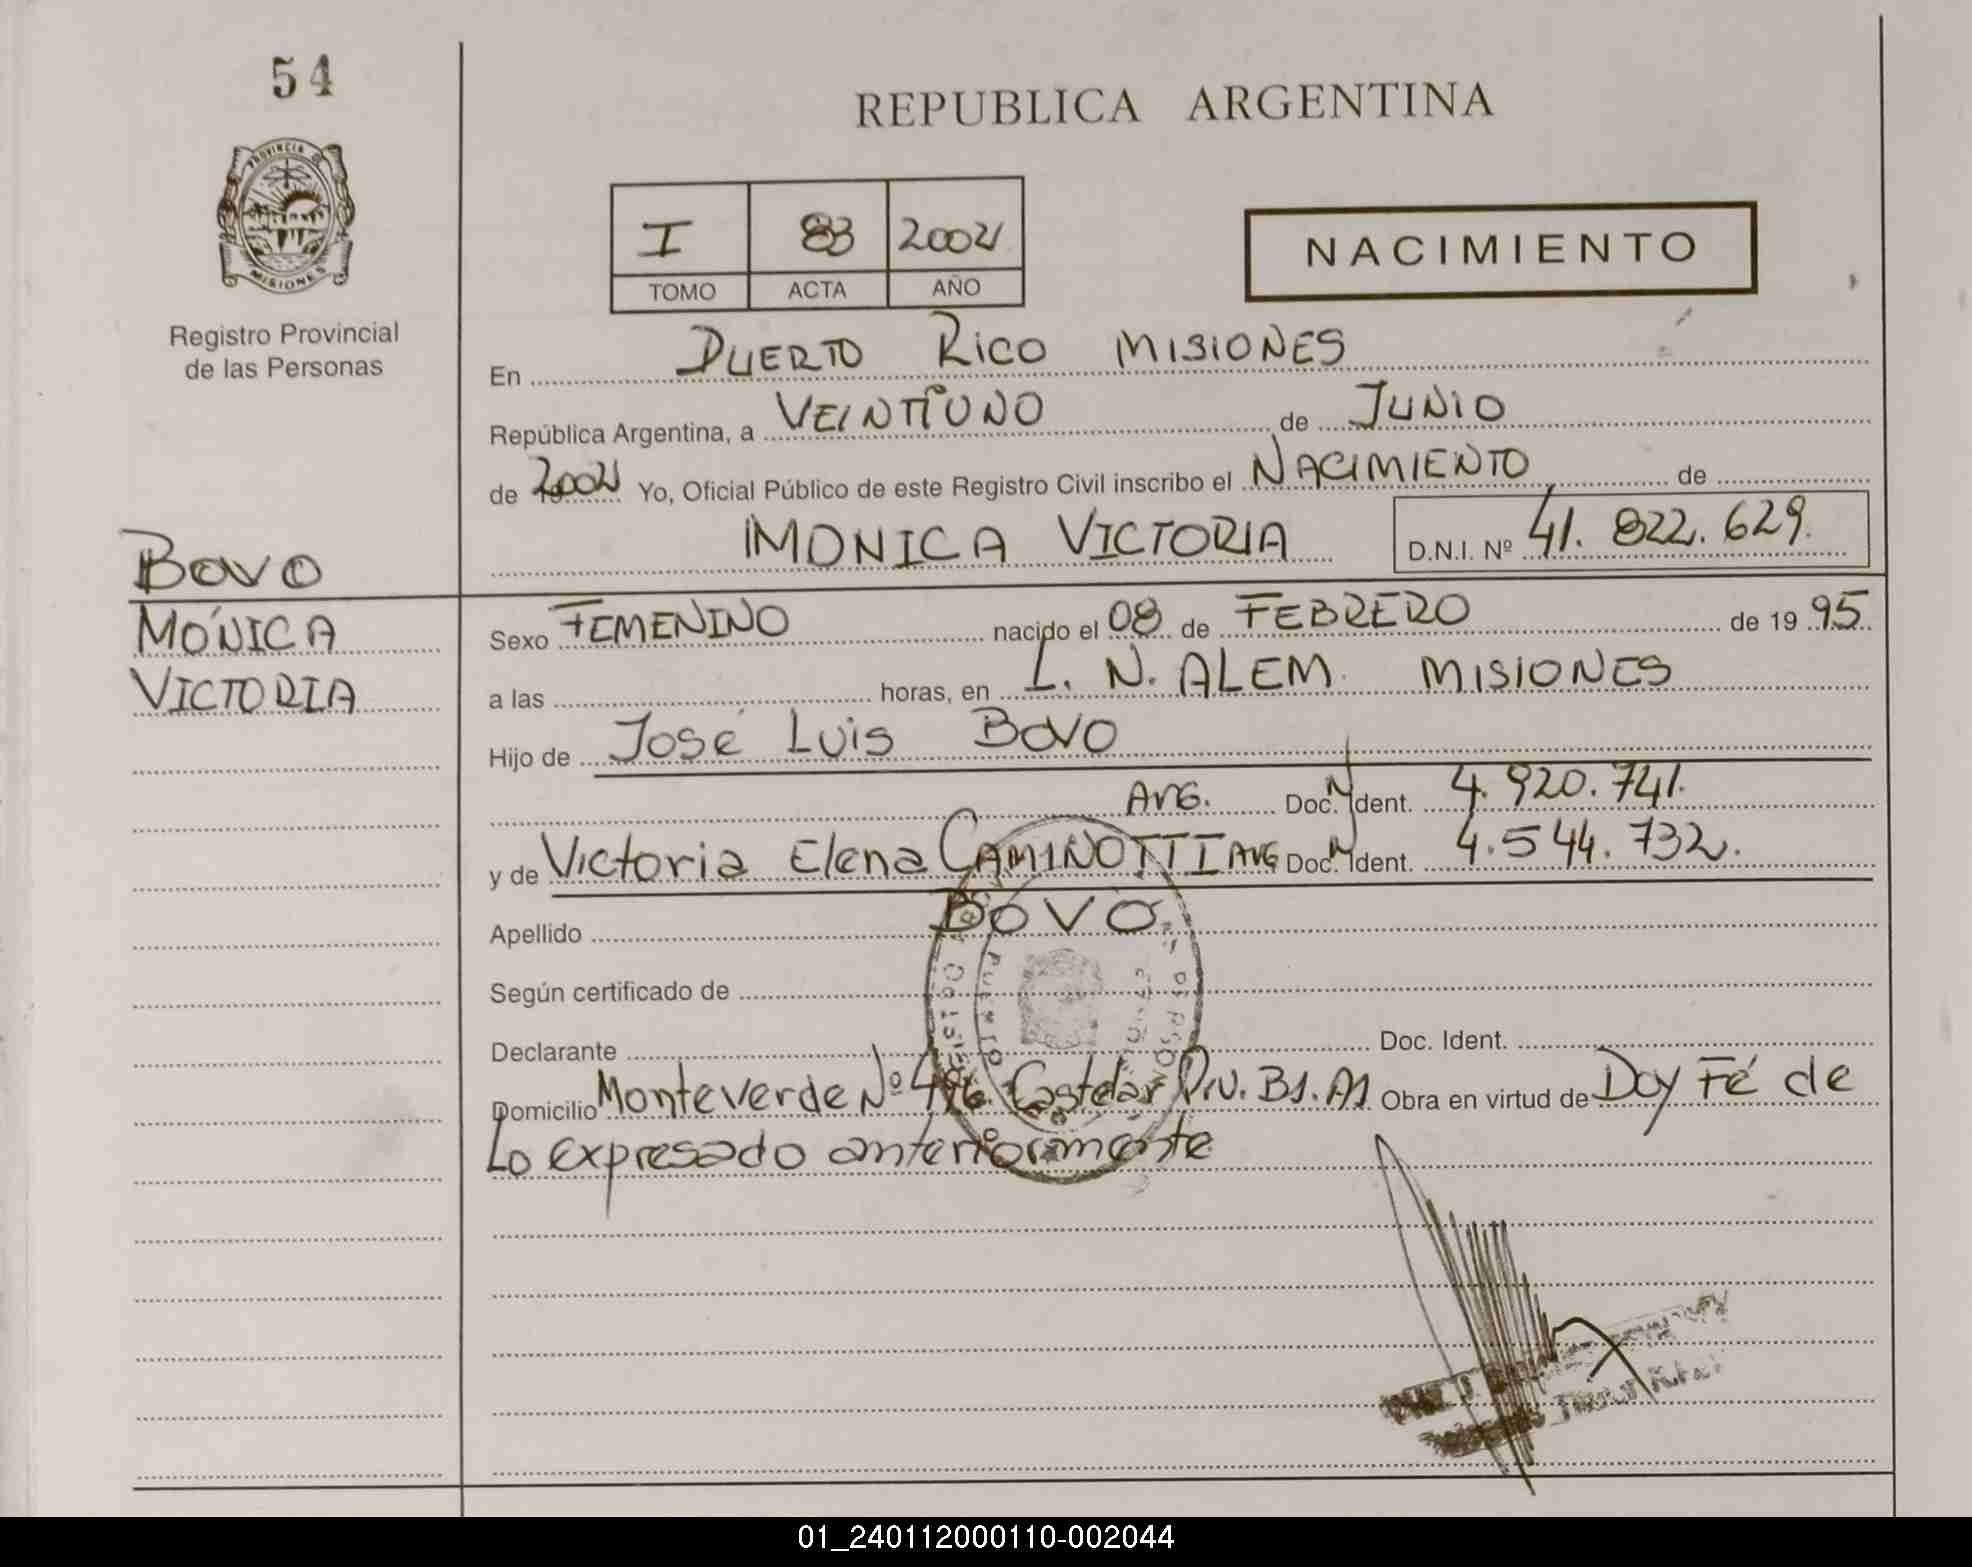 54
REPUBLICA ARGENTINA
PROVINCIA DE
MISIONES
I 83 2002
TOMO ACTA AÑO
NACIMIENTO
Registro Provincial
de las Personas
En PUERTO RICO MISIONES
República Argentina, a VEINTIUNO de JUNIO
de 2002 Yo, Oficial Público de este Registro Civil inscribo el NACIMIENTO de
MONICA VICTORIA D.N.I. Nº 41.822.629.
BOVO
MÓNICA
VICTORIA
Sexo FEMENINO nacido el 08 de FEBRERO de 19 95
a las horas, en L. N. ALEM. MISIONES
Hijo de José Luis BOVO
ARG. Doc. Ident. 4.920.741.
y de Victoria Elena CAMINOTTI ARG Doc. Ident. 4.544.732.
Apellido BOVO
Según certificado de
Declarante Doc. Ident.
Domicilio Monteverde Nº Castelar Obra en virtud de Doy Fé de
Lo expresado anteriormente
01_240112000110-002044